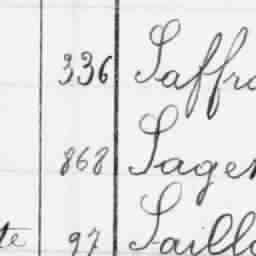 336 Saffro
868 Sagen
te 97 Saillo